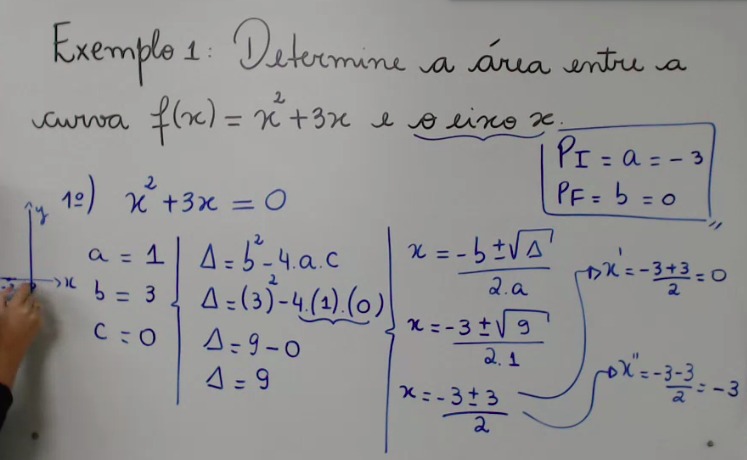 Exemplo 1: Determine a área entre a
curva f(x) = x² + 3x e o eixo x.
PI = a = -3
PF = b = 0
y
x
1º) x² + 3x = 0
a = 1
b = 3
c = 0
Δ = b² - 4.a.c
Δ = (3)² - 4.(1).(0)
Δ = 9 - 0
Δ = 9
x = -b ± √Δ / 2.a
x = -3 ± √9 / 2.1
x = -3 ± 3 / 2
x' = -3+3 / 2 = 0
x" = -3-3 / 2 = -3